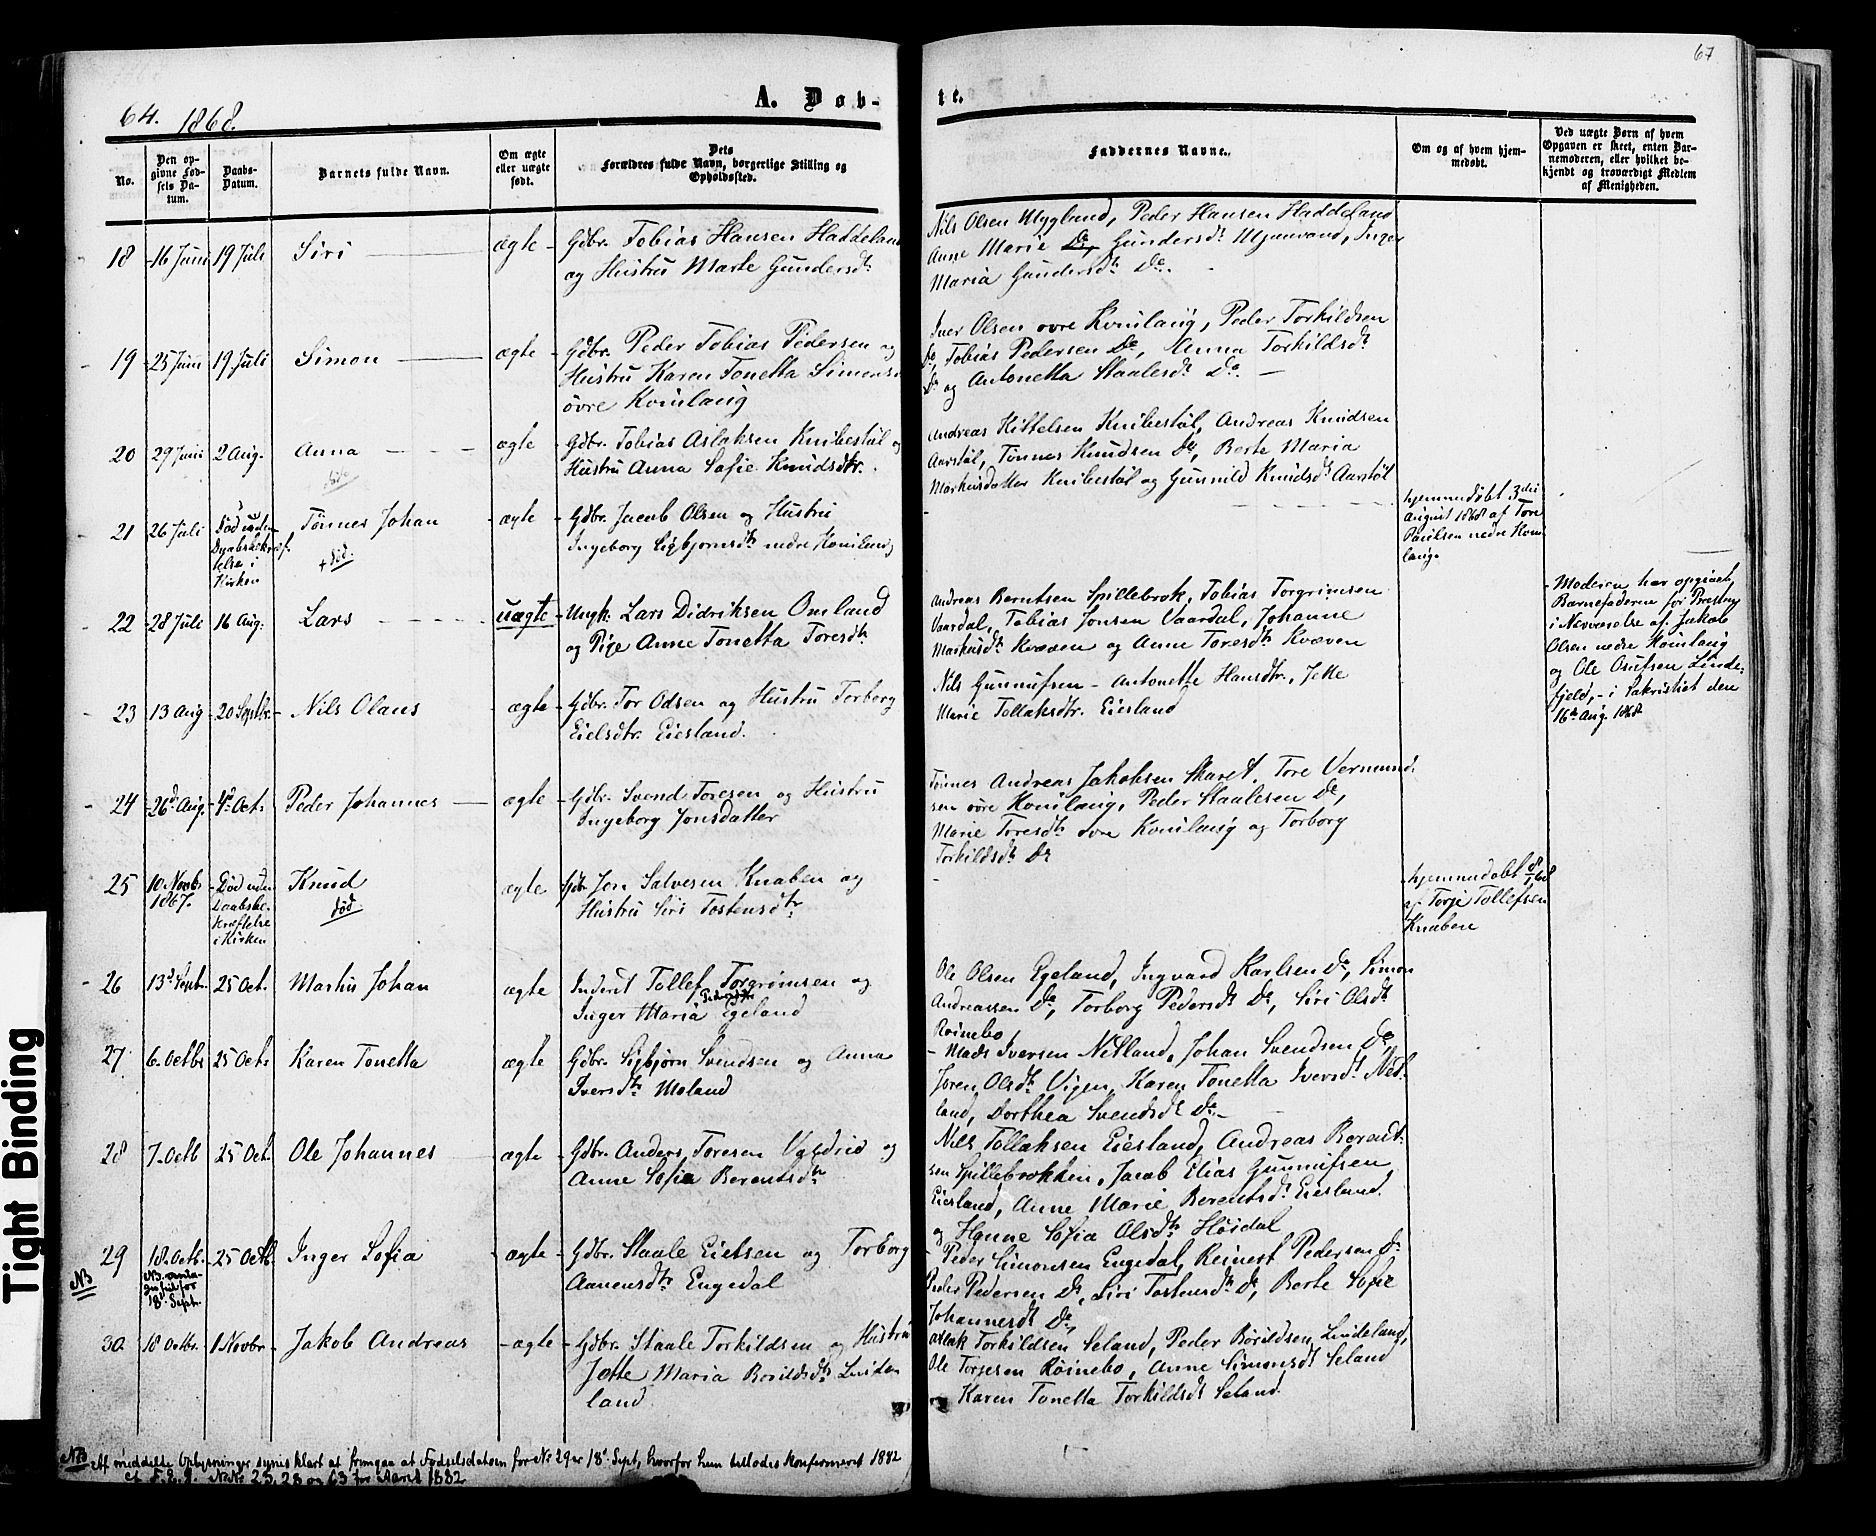 64. 1868.
A. Døb-
te.
67
No.
Den op-
givne Fød-
sels Da-
tum.
Daabs-
Datum.
Barnets fulde Navn.
Om ægte
eller uægte
født.
Dets
Forældres fulde Navn, borgerlige Stilling og
Opholdssted.
Faddernes Navne.
Om og af hvem hjem-
medøbt.
Ved uægte Børn af hvem
Opgaven er skeet, enten Bar-
nemoderen, eller hvilket be-
kjendt og troværdigt Medlem
af Menigheden.
18 16 Juni 19 Juli Siri ægte Gdbr. Tobias Hansen Haddeland
og Hustru Marte Gundersdtr
Nils Olsen Myglund, Peder Hansen Haddeland
Anne Marie Do, Gundersdtr Mjaavand, Inger
Maria Gundersdtr Do.
19 25 Juni 19. Juli Simon ægte Gdbr. Peder Tobias Pedersen og
Hustru Karen Tonetta Simons
øvre Kvinlaug
Iver Olsen øvre Kvinlaug, Peder Torkildsen
Do, Tobias Pedersen Do, Anna Torkildsdtr
Do og Antonetta Staalesdtr Do.
20 29 Juni 2 Aug. Anna ægte Gdbr. Tobias Aslaksen Knibestøl og
Hustru Anna Sofie Knudsdtr.
Andreas Kittelsen Knibestøl, Andreas Knudsen
Aarstøl, Tønnes Knudsen Do, Berte Maria
Markusdatter Knibestøl og Gunnild Knudsdtr Aarstøl
21 26 Juli Død uden
Daabsbekræf-
telse i
Kirken
Tønnes Johan
+ død.
ægte Gdbr. Jacob Olsen og Hustru
Ingeborg Sigbjørnsdtr nedre Kvinlaug
hjemmedøbt 3die
August 1868 af Tore
Paulsen nedre Kvin-
laug.
22 28 Juli 16 Aug. Lars uægte Ungk. Lars Didriksen Omland
og Pige Anne Tonetta Toresdtr
Andreas Berntsen Spillebrok, Tobias Torgrimsen
Vaardal, Tobias Jonsen Vaardal, Johanne
Markusdtr Kvæven og Anne Toresdtr Kvæven
Moderen har opgivet
Barnefaderen for Presten
i Nærværelse af Jakob
Olsen nedre Kvinlaug
og Ole Osufsen Linde-
fjeld, - i Sakristiet den
16de Aug. 1868
23 13 Aug 20 Septbr. Nils Olaus ægte Gdbr. Tor Odsen og Hustru Torborg
Eielsdtr. Eiesland.
Nils Gunnufsen - Antonette Hansdtr., Jette
Marie Tollaksdtr. Eiesland
24 26d Aug. 4d Oct. Peder Johannes ægte Gdbr. Svend Toresen og Hustru
Ingeborg Jonsdatter
Tønnes Andreas Jakobsen Skaret, Tore Vermund-
sen øvre Kvinlaug, Peder Staalesen Do,
Marie Toresdtr øvre Kvinlaug og Torborg
Torkildsdtr Do
25 10 Novb.
1867.
Død uden
Daabsbe-
kræftelse
i Kirken
Knud
død.
ægte Gdbr. Jon Salvesen Knaben og
Hustru Siri Tostensdtr
hjemmedøbt 8/1 68
af Torje Tollefsen
Knaben
26 13d Sept. 25 Oct. Markus Johan ægte Inderst Tollef Torgrimsen og
Inger Maria Pedersdtr Egeland
Ole Olsen Egeland, Ingvard Karlsen Do, Simon
Andreassen Do, Torborg Pedersdtr Do, Siri Olsdtr
Røinebo
27 6. Octbr 25 Octr Karen Tonetta ægte Gdbr. Sigbjørn Svendsen og Anna
Iversdtr Moland
Mads Iversen Netland, Johan Svendsen Do,
Joren Olsdtr Vigen, Karen Tonetta Iversdtr Net-
land, Dorthea Svendsdtr Do.
28 7. Octb 25 Oct. Ole Johannes ægte Gdbr. Anders Toresen og
Anne Sofia Berentsdtr
Nils Tollaksen Eiesland, Andreas Berendt-
sen Spillebrokken, Jacob Elias Gunnufsen
Eiesland, Anne Marie Berentsdtr Eiesland
og Hanne Sofia Olsdtr Høidal
29 18. Octb. 25 Octb. Inger Sofia ægte Gdbr. Staale Eielsen og Torborg
Aanensdtr Engedal
NB
18d Sept.
Peder Simonsen Engedal, Reinert Pedersen Do
Peder Pedersen Do, Siri Tostensdtr Do, Berte Sofie
Johannesdtr Do,
30. 18 Octbr. 1 Novbr Jakob Andreas ægte Gdbr. Staale Torkildsen og Hustru
Jette Maria Borildsdtr Linde-
land
Aslak Torkildsen Seland, Peder Børildsen Lindeland,
Ole Torjesen Røinebo, Anne Simonsdtr Seland
og Karen Tonetta Torkildsdtr Seland.
NB Af meddelte Oplysninger synes klart at fremgaa at Fødselsdatoen for No 29 er 18d Sept, hvorfor hun tillodes Konfirmeret 1882
cf. No 25, 28 og 63 for Aaret 1882
Tight Binding